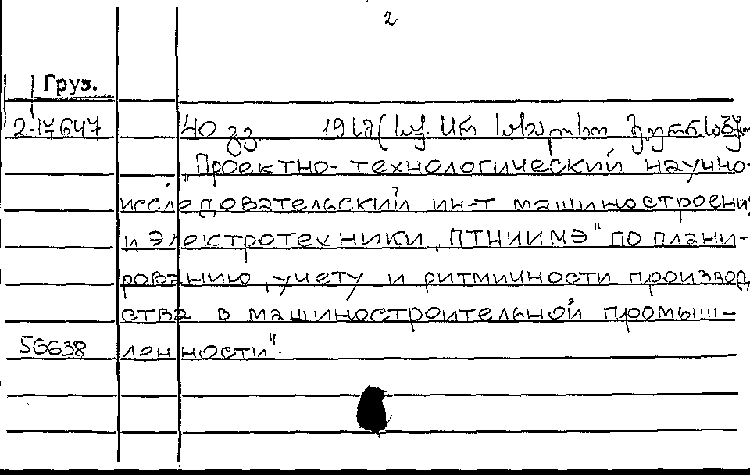 2
Груз.
2-17647 40 გვ. 19 სმ (საქ. სსრ
„Проектно-технологический научно-
исследовательский ин-т машиностроени
и электротехники „ПТНИИМЭ" по плани-
рованию, учету и ритмичности производ
ства в машиностроительной промыш-
56638 ленности".